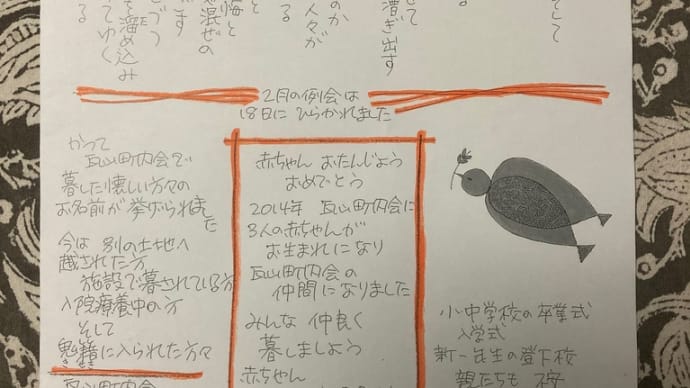 して
して
漕ぎ出す
のか
人々が
る
悔と
混ぜの
づつ
溜め込み
てゆく
る
2月の例会は
18日に ひらかれました
かつて
瓦山町内会で
暮した懐しい方々の
お名前が挙げられました
今は 別の土地へ
越された方
施設で暮されている方
入院療養中の方
そして
鬼籍に入られた方々
瓦山町内会
赤ちゃん おたんじょう
おめでとう
2014年 瓦山町内会に
3人の赤ちゃんが
お生まれになり
瓦山町内会の
仲間になりました
みんな 仲良く
暮しましょう
赤ちゃん
小中学校の卒業式
入学式
新一年生の登下校
親たちも